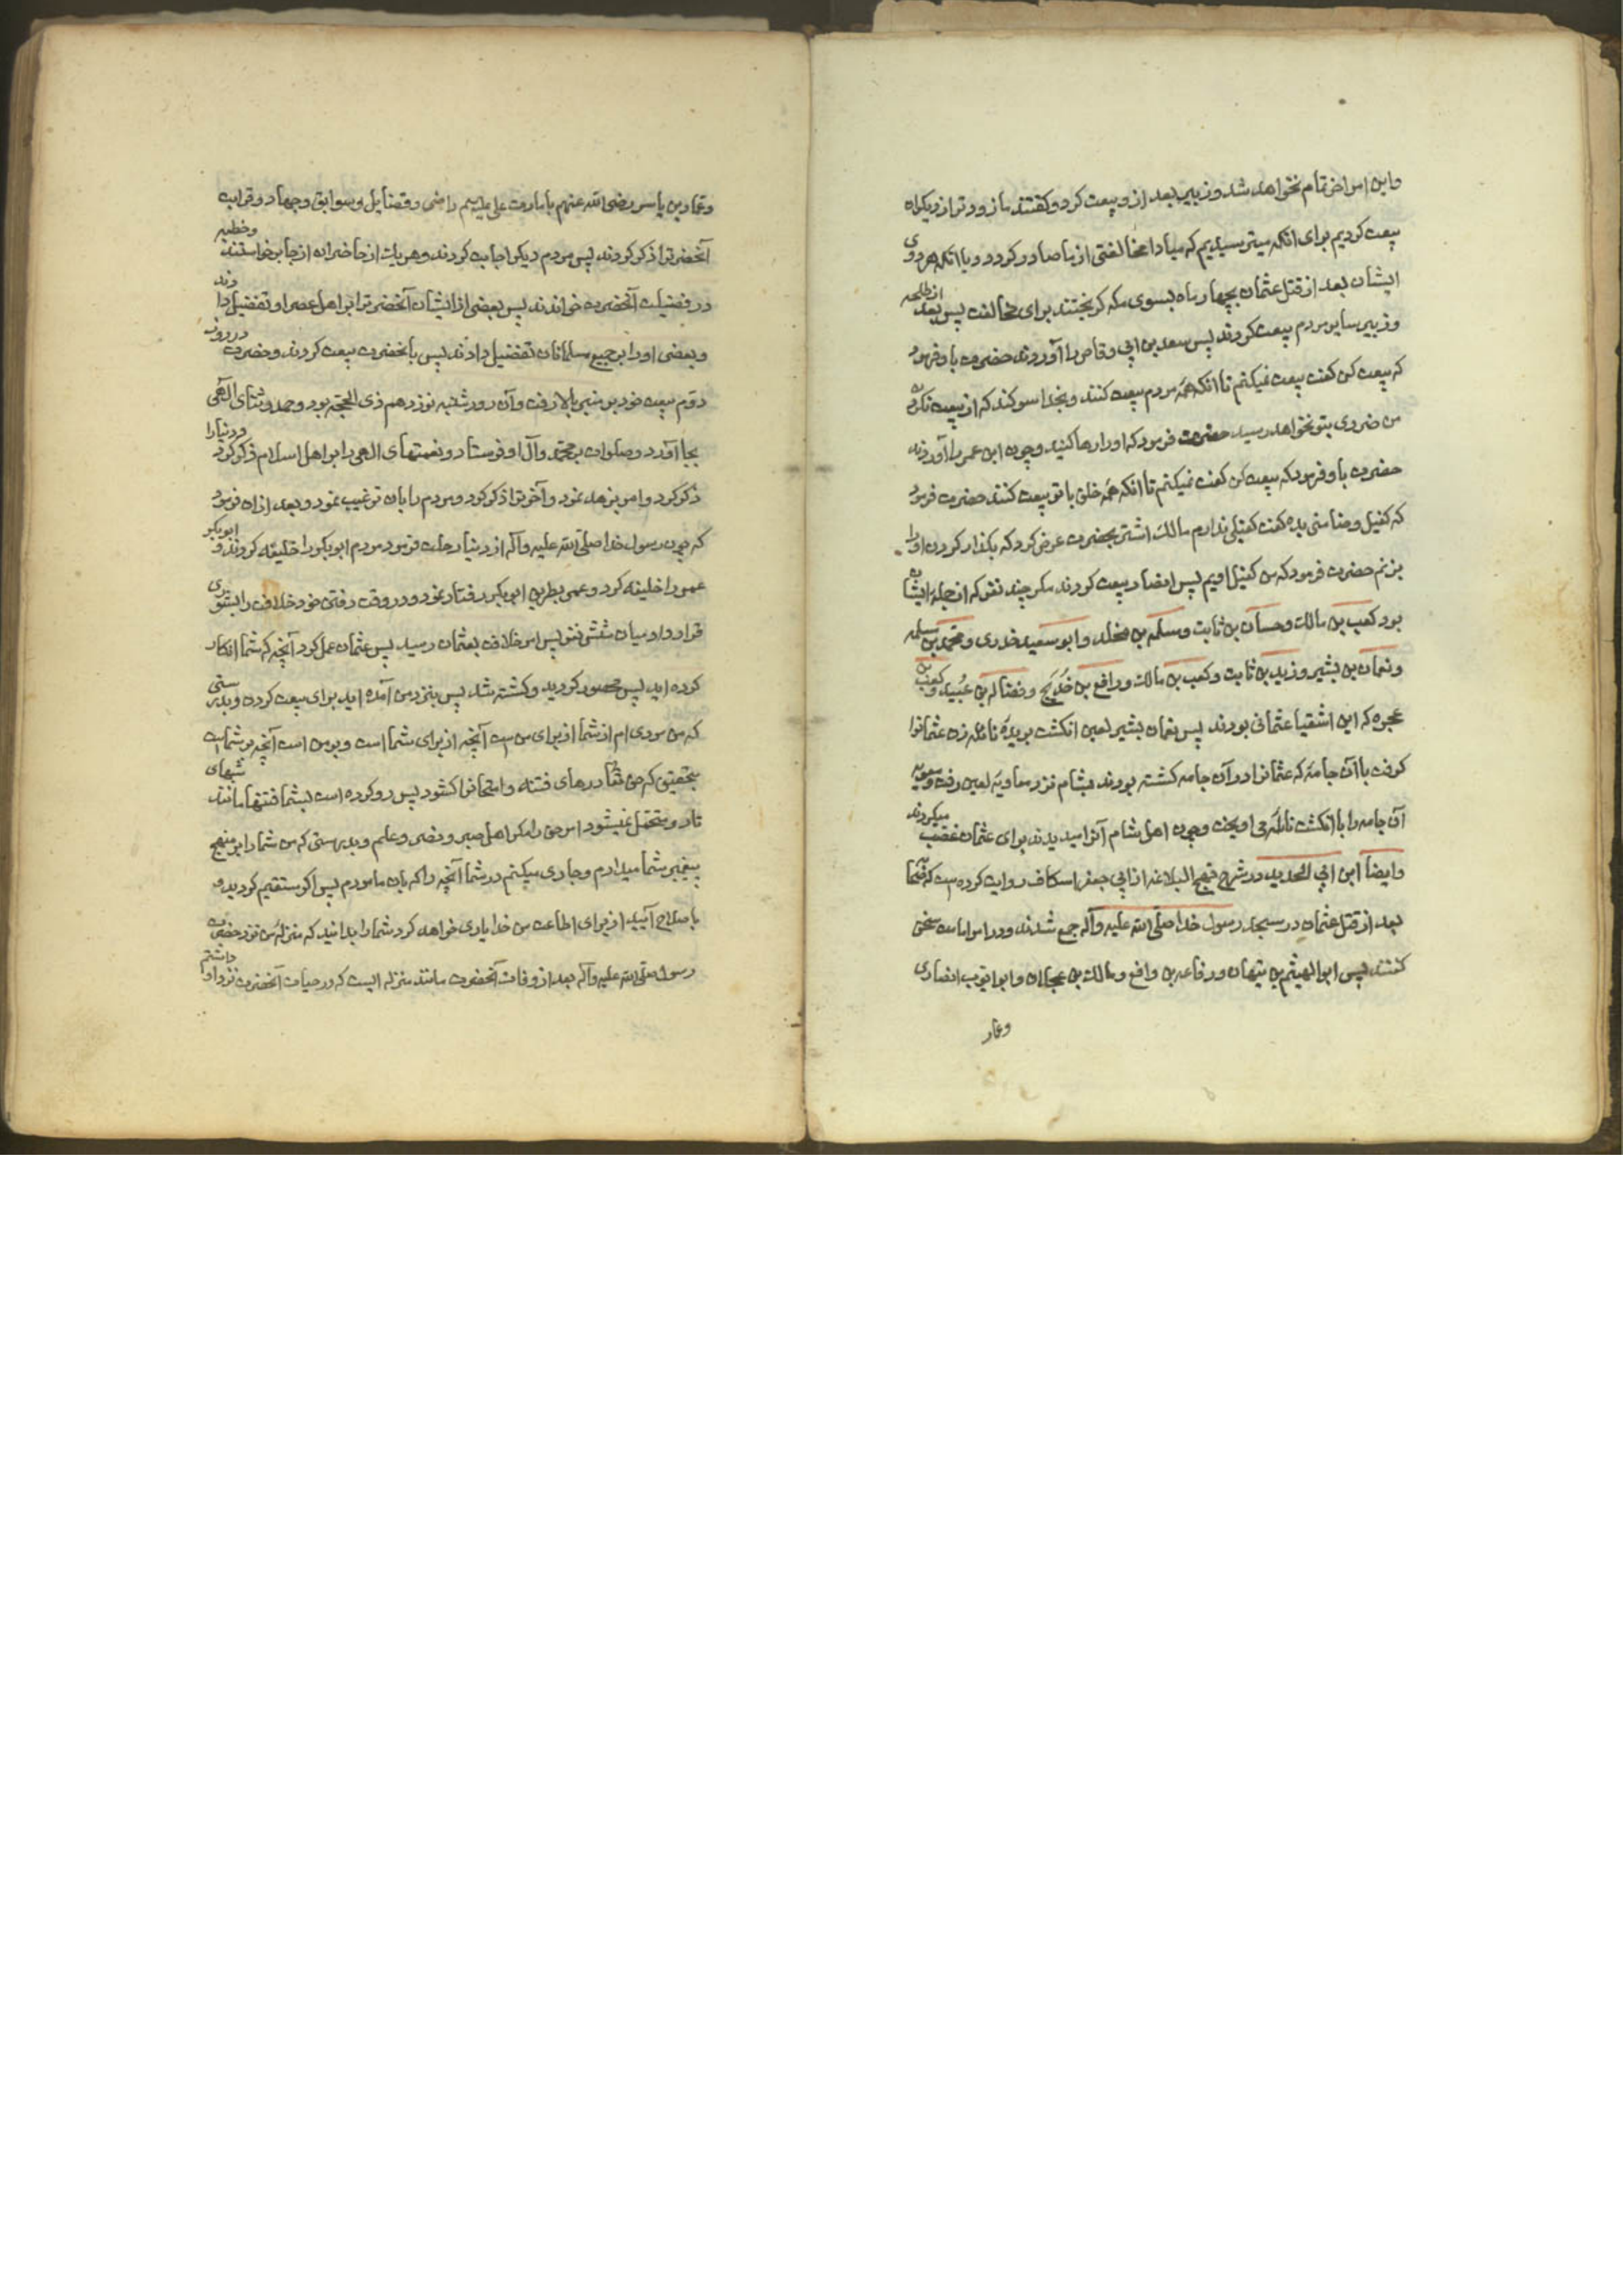 واین امر آخر تمام نخواهد شد و زبیر بعد از و بیعت کرد و گفتند ما زودتر از دیگران
بیعت کردیم برای آنکه میترسیدیم که مبادا مخالفتی از ما صادر کردد و با آنکه هر دوی
ایشان بعد از قتل عثمان بچهار ماه بسوی مکه کریختند برای مخالفت پس بعد از طلحه
و زبیر سایر مردم بیعت کردند پس سعد بن ابی وقاص را آوردند حضرت باو فرمود
که بیعت کن کفت بیعت نمیکنم تا آنکه همه مردم بیعت کنند و بخدا سوکند که از بیعت نکردن
من ضرری بتو نخواهد رسید حضرت فرمود که او را رها کنید و چون ابن عمر را آوردند
حضرت باو فرمود که بیعت کن کفت نمیکنم تا آنکه همه خلق با تو بیعت کنند حضرت فرمود
که کفیل و ضامنی بده کفت کفیلی ندارم مالک اشتر بحضرت عرض کرد که بکذار کردن او را
بزنم حضرت فرمود که من کفیل اویم پس انصار بیعت کردند مکر چند نفر که از جمله ایشان
بود کعب بن مالک و حسان بن ثابت و مسلم بن مخلد و ابو سعید خدری و محمد بن مسلمه
و نعمان بن بشیر و زید بن ثابت و کعب بن مالک و رافع بن خدیج و فضاله بن عبید و کعب بن
عجره که این اشقیا عثمانی بودند پس نعمان بشیر لعین انکشت بریده نائله زن عثمانرا
کرفت با آن جامه که عثمانرا در آن جامه کشته بودند بشام نزد معاویه لعین رفت و معویه
آن جامه را با انکشت نائله می اویخت و چون اهل شام آنرا میدیدند برای عثمان غضب میکردند
و ایضا ابن ابی الحدید در شرح نهج البلاغه از ابی جعفر اسکاف روایت کرده است که صحابه
بعد از قتل عثمان در مسجد رسول خدا صلی الله علیه وآله جمع شدند و در امر امامت سخن
کفتند پس ابو الهیثم بن تیهان و رفاعه بن رافع و مالک بن عجلان و ابو ایوب انصاری
وعمار
وعمار بن یاسر رضی الله عنهم بامارت علی علیه السلم راضی و فضایل و سوابق و جهاد و قرابت
آنحضرترا ذکر کردند پس مردم دیکر اجابت کردند و هر یک از حاضران از جا برخواستند و خطبه
در فضیلت آنحضرت خواندند پس بعضی از ایشان آنحضرترا بر اهل عصر او تفضیل دادند
و بعضی او را بر جمیع مسلمانان تفضیل دادند پس با آنحضرت بیعت کردند و حضرت در روز
دوم بیعت خود بر منبر بالا رفت و آن روز شنبه نوزدهم ذی الحجه بود و حمد و ثنای الهی
بجا آورد و صلوات بر محمد وآل او فرستاد و نعمتهای الهی را بر اهل اسلام ذکر کرد و دنیا را
ذکر کرد و امر بزهد نمود و آخرترا ذکر کرد و مردم را بآن ترغیب نمود و بعد از آن فرمود
که چون رسول خدا صلی الله علیه وآله از دنیا رحلت فرمود مردم ابوبکر را خلیفه کردند و ابوبکر
عمر را خلیفه کرد و عمر بطریق ابی بکر رفتار نمود و در وقت رفتن خود خلافت را بشوری
قرار داد میان شش نفر پس امر خلافت بعثمان رسید پس عثمان عمل کرد آنچه که شما انکار
کرده اید پس محصور کردید و کشته شد پس بنزد من آمده اید برای بیعت کردن و بدرستی
که من مردی ام از شما از برای من است آنچه از برای شما است و بر من است آنچه بر شما است
بتحقیق که حق تعالی درهای فتنه و امتحانرا کشود پس رو کرده است بشما فتنها مانند شبهای
تار و متحمل نمیشود امر حق را مکر اهل صبر و نصر و علم و بدرستی که من شما را بر منهج
پیغمبر شما میدارم و جاری میکنم در شما آنچه را که بآن مامورم پس اکر مستقیم کردید و
باصلاح آیید از برای اطاعت من خدا یاری خواهد کرد شما را بدانید که منزله من نزد حضرت
رسول صلی الله علیه وآله بعد از وفات آنحضرت مانند منزله ایست که در حیات آنحضرت نزد او داشتم